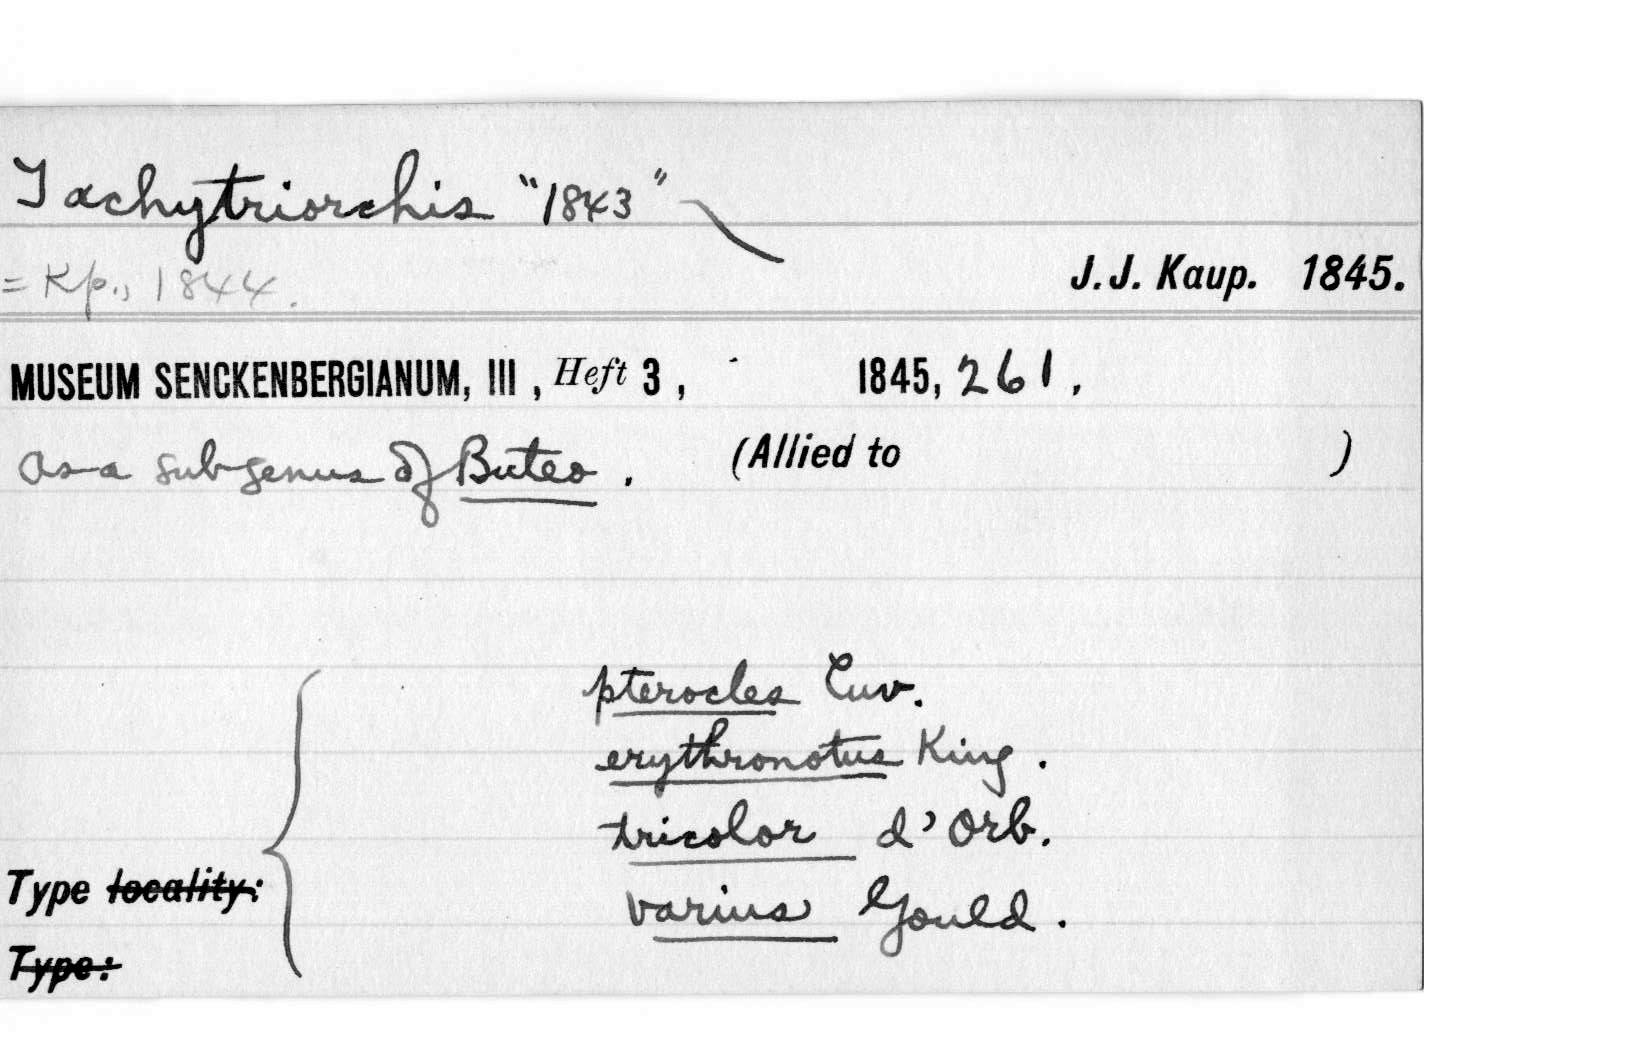 Tachytriorchis "1843"
= Kp., 1844.
J.J. Kaup. 1845.
MUSEUM SENCKENBERGIANUM, III, Heft 3, 1845, 261.
as a subgenus of Buteo. (Allied to )
pterocles Cuv.
erythronotus King.
tricolor d'Orb.
Type locality:
varius Gould.
Type: